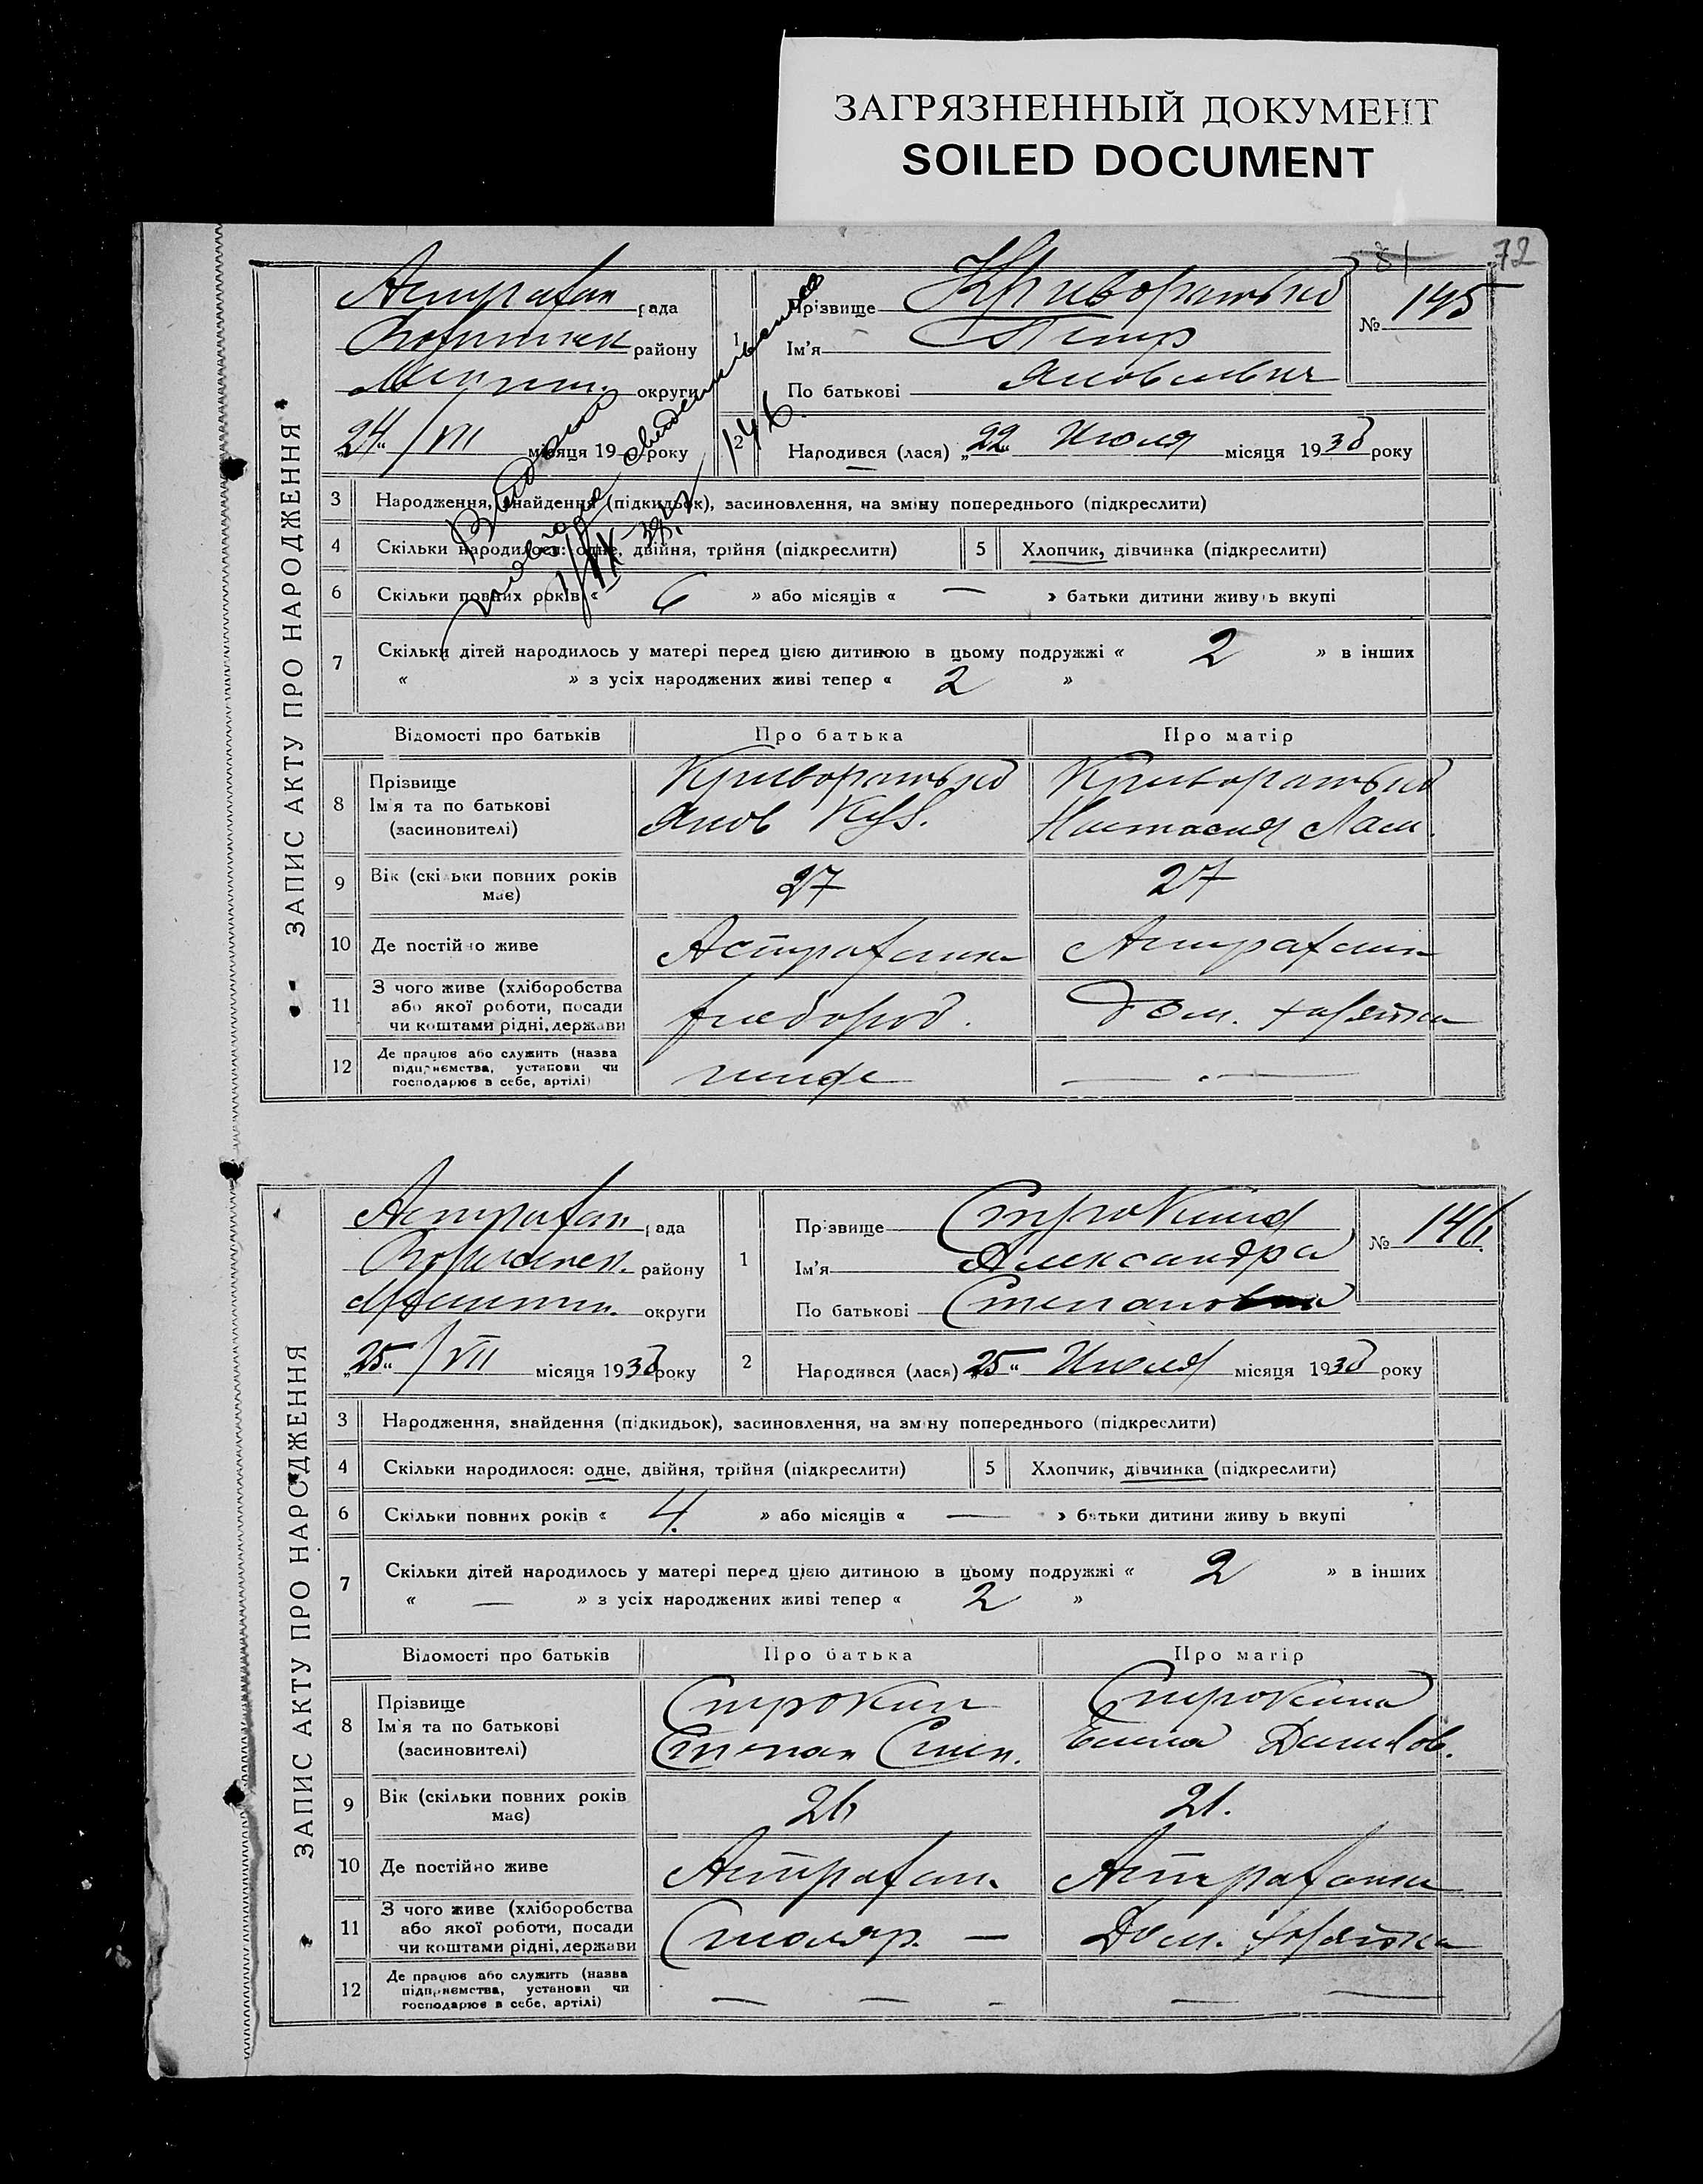 ЗАГРЯЗНЕННЫЙ ДОКУМЕНТ
SOILED DOCUMENT
81 72
ЗАПИС АКТУ ПРО НАРОДЖЕННЯ
Астрахан рада
району
округи
„24“/VII місяця 19 року
1
Прізвище
Ім'я Петр
По батькові Яковлевич
№ 145
2
Народився (лася) „22“ Июля місяця 1930 року
Выдано
повторное свидетельство
146
3 Народження, знайдення (підкидьок), засиновлення, на зміну попереднього (підкреслити)
4 Скільки народилося: одне, двійня, трійня (підкреслити) 5 Хлопчик, дівчинка (підкреслити)
6 Скільки повних років « 6 » або місяців « — » батьки дитини живуть вкупі
7 Скільки дітей народилось у матері перед цією дитиною в цьому подружжі « 2 » в інших
« » з усіх народжених живі тепер « 2 »
Відомості про батьків Про батька Про матір
8 Прізвище
Ім'я та по батькові Яков Настасия
(засиновителі)
9 Вік (скільки повних років має) 27 27
10 Де постійно живе Астраханка Астрахан
11 З чого живе (хліборобства
або якої роботи, посади Дом. хозяйка
чи коштами рідні, держави
12 Де працює або служить (назва
підприємства, установи чи
господарює в себе, артілі) — —
ЗАПИС АКТУ ПРО НАРОДЖЕННЯ
Астрахан рада
району
округи
„25“/VII місяця 1930 року
1
Прізвище Строкина
Ім'я Александра
По батькові Степановна
№ 146
2
Народився (лася) „25“ Июля місяця 1930 року
3 Народження, знайдення (підкидьок), засиновлення, на зміну попереднього (підкреслити)
4 Скільки народилося: одне, двійня, трійня (підкреслити) 5 Хлопчик, дівчинка (підкреслити)
6 Скільки повних років « 4. » або місяців « — » батьки дитини живуть вкупі
7 Скільки дітей народилось у матері перед цією дитиною в цьому подружжі « 2 » в інших
« — » з усіх народжених живі тепер « 2 »
Відомості про батьків Про батька Про матір
8 Прізвище Строкин Строкина
Ім'я та по батькові Степан
(засиновителі)
9 Вік (скільки повних років має) 26 21.
10 Де постійно живе Астрахан. Астраханка
11 З чого живе (хліборобства
або якої роботи, посади Столяр. — Дом. хозяйка
чи коштами рідні, держави
12 Де працює або служить (назва
підприємства, установи чи
господарює в себе, артілі) — — — — —